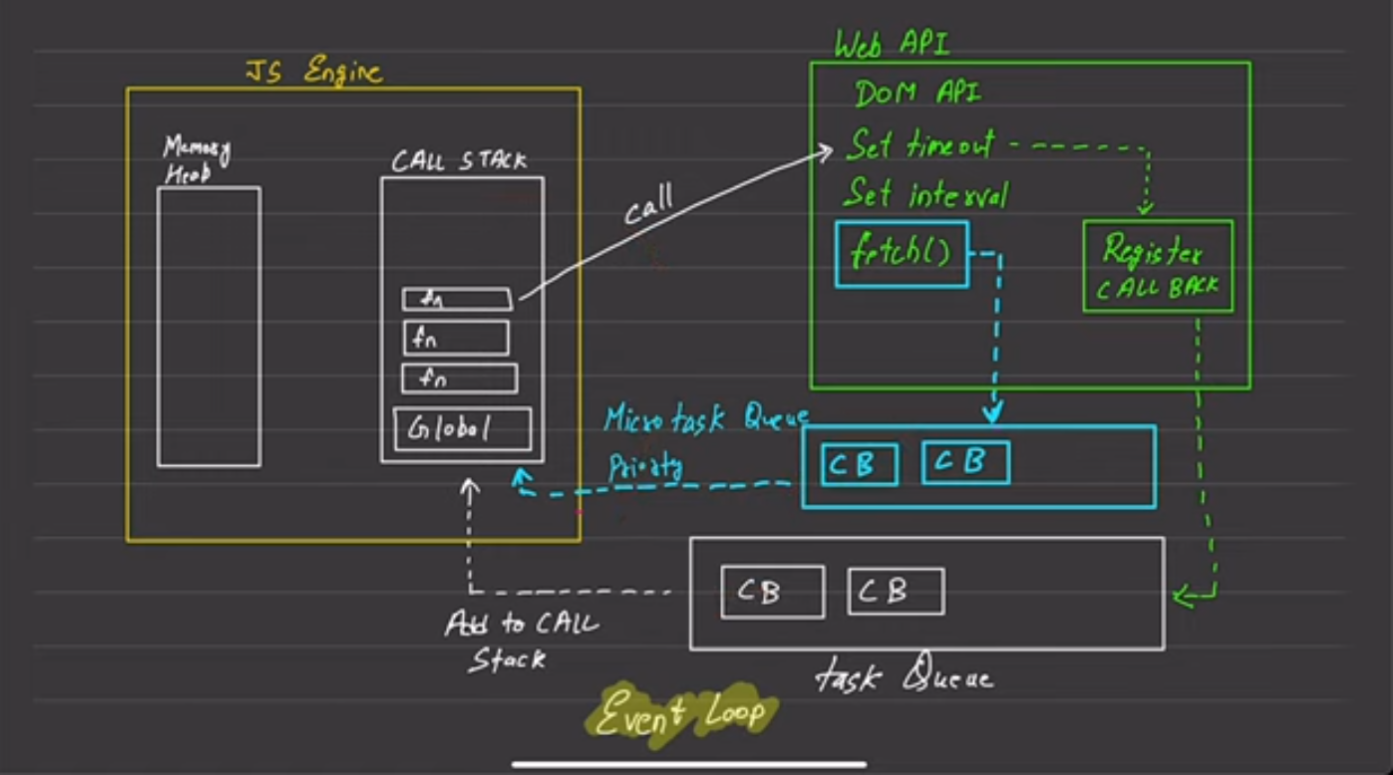 JS Engine
Memory
Heab
CALL STACK
fn
fn
fn
Global
call
Web API
DOM API
Set timeout
Set interval
fetch()
Register
CALL BACK
Micro task Queue
Priority
CB CB
CB CB
Add to CALL
Stack
task Queue
Event Loop